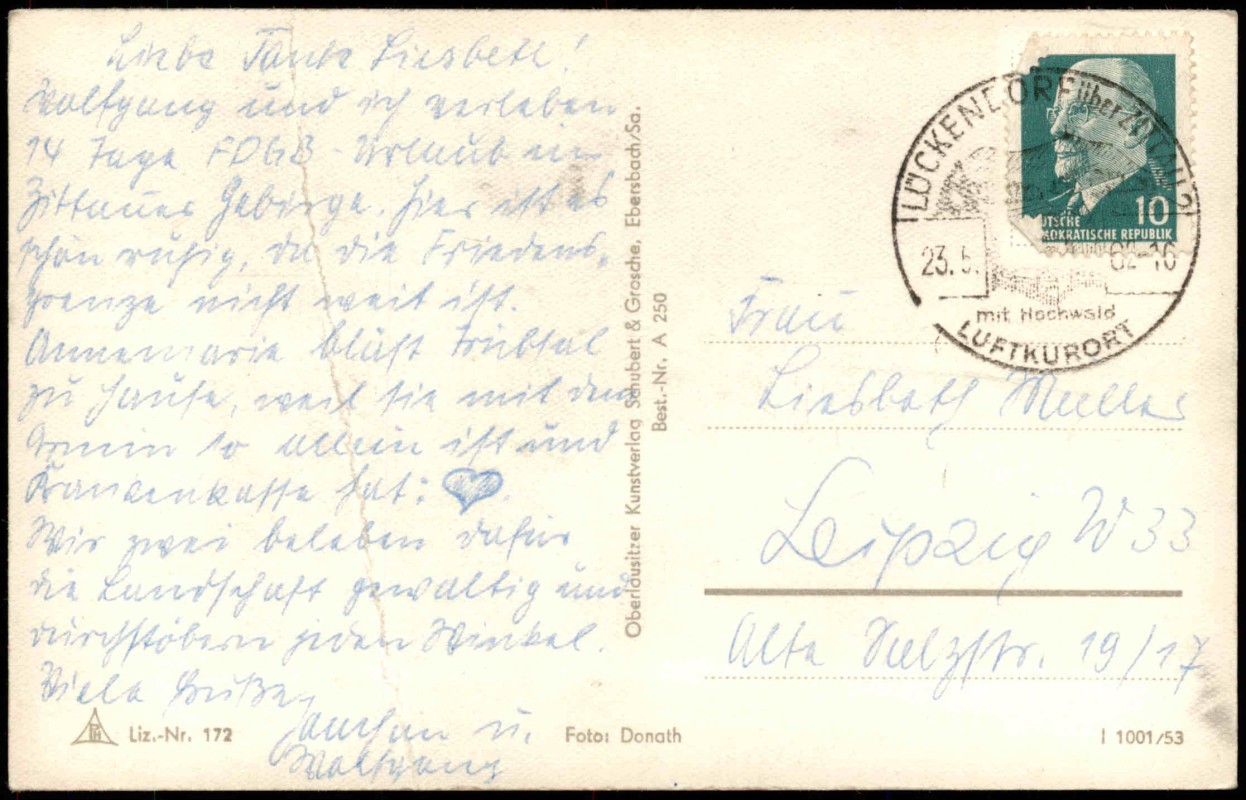 Liebe Tante Liesbeth!
Wolfgang und ich verleben
14 Tage FDGB-Urlaub im
Zittauer Gebirge. Hier ist es
schön ruhig, da die Friedens-
grenze nicht weit ist.
Annemarie bläst Trübsal
zu Hause, weil sie mit dem
so allein ist und
Krankenkasse hat:
Wir zwei beleben dafür
die Landschaft gewaltig und
durchstöbern jeden Winkel.
Viele Grüße,
Jochen u.
Wolfgang
Liz.-Nr. 172
Foto: Donath
I 1001/53
Oberlausitzer Kunstverlag Schubert & Grosche, Ebersbach/Sa.
Best.-Nr. A 250
10
DEUTSCHE
DEMOKRATISCHE REPUBLIK
LÜCKENDORF über ZITTAU 2
23.5. 62-16
mit Hochwald
LUFTKURORT
Frau
Liesbeth Müller
Leipzig W 33
Alte Salzstr. 19/17